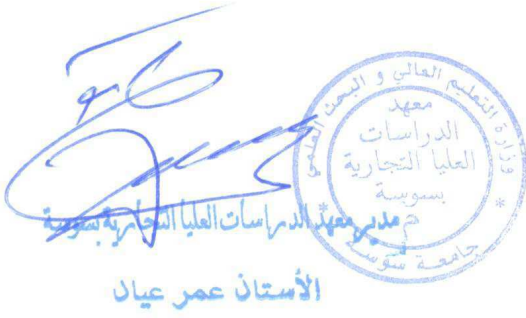 وزارة التعليم العالي و البحث العلمي
معهد
الدراسات
العليا التجارية
بسوسة
م
جامعة سوسة
مدير معهد الدراسات العليا التجارية بسوسة
الأستاذ عمر عيان